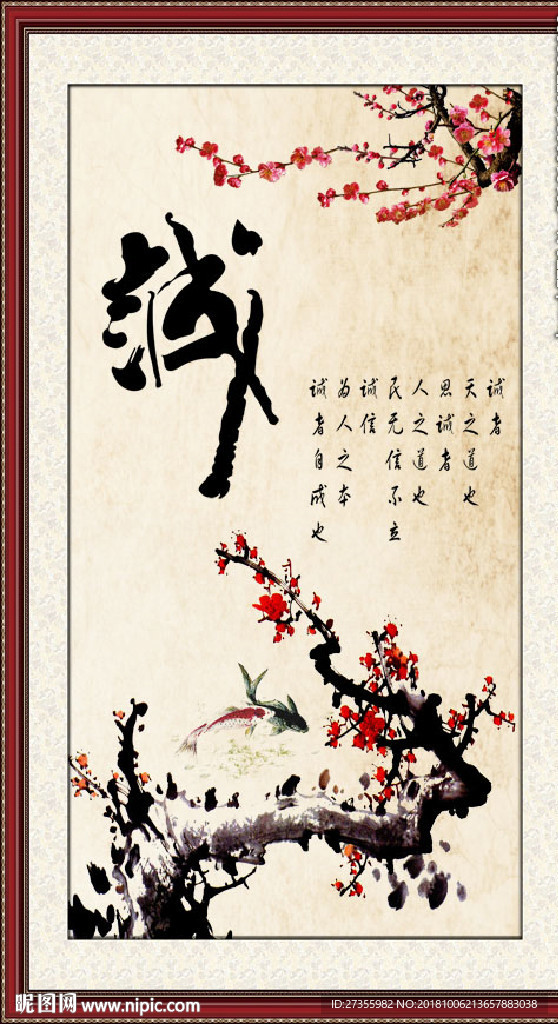 诚
诚者
天之道也
思诚者
人之道也
民无信不立
诚信
为人之本
诚者自成也
昵图网 www.nipic.com
ID:27355982 NO:20181006213657883038